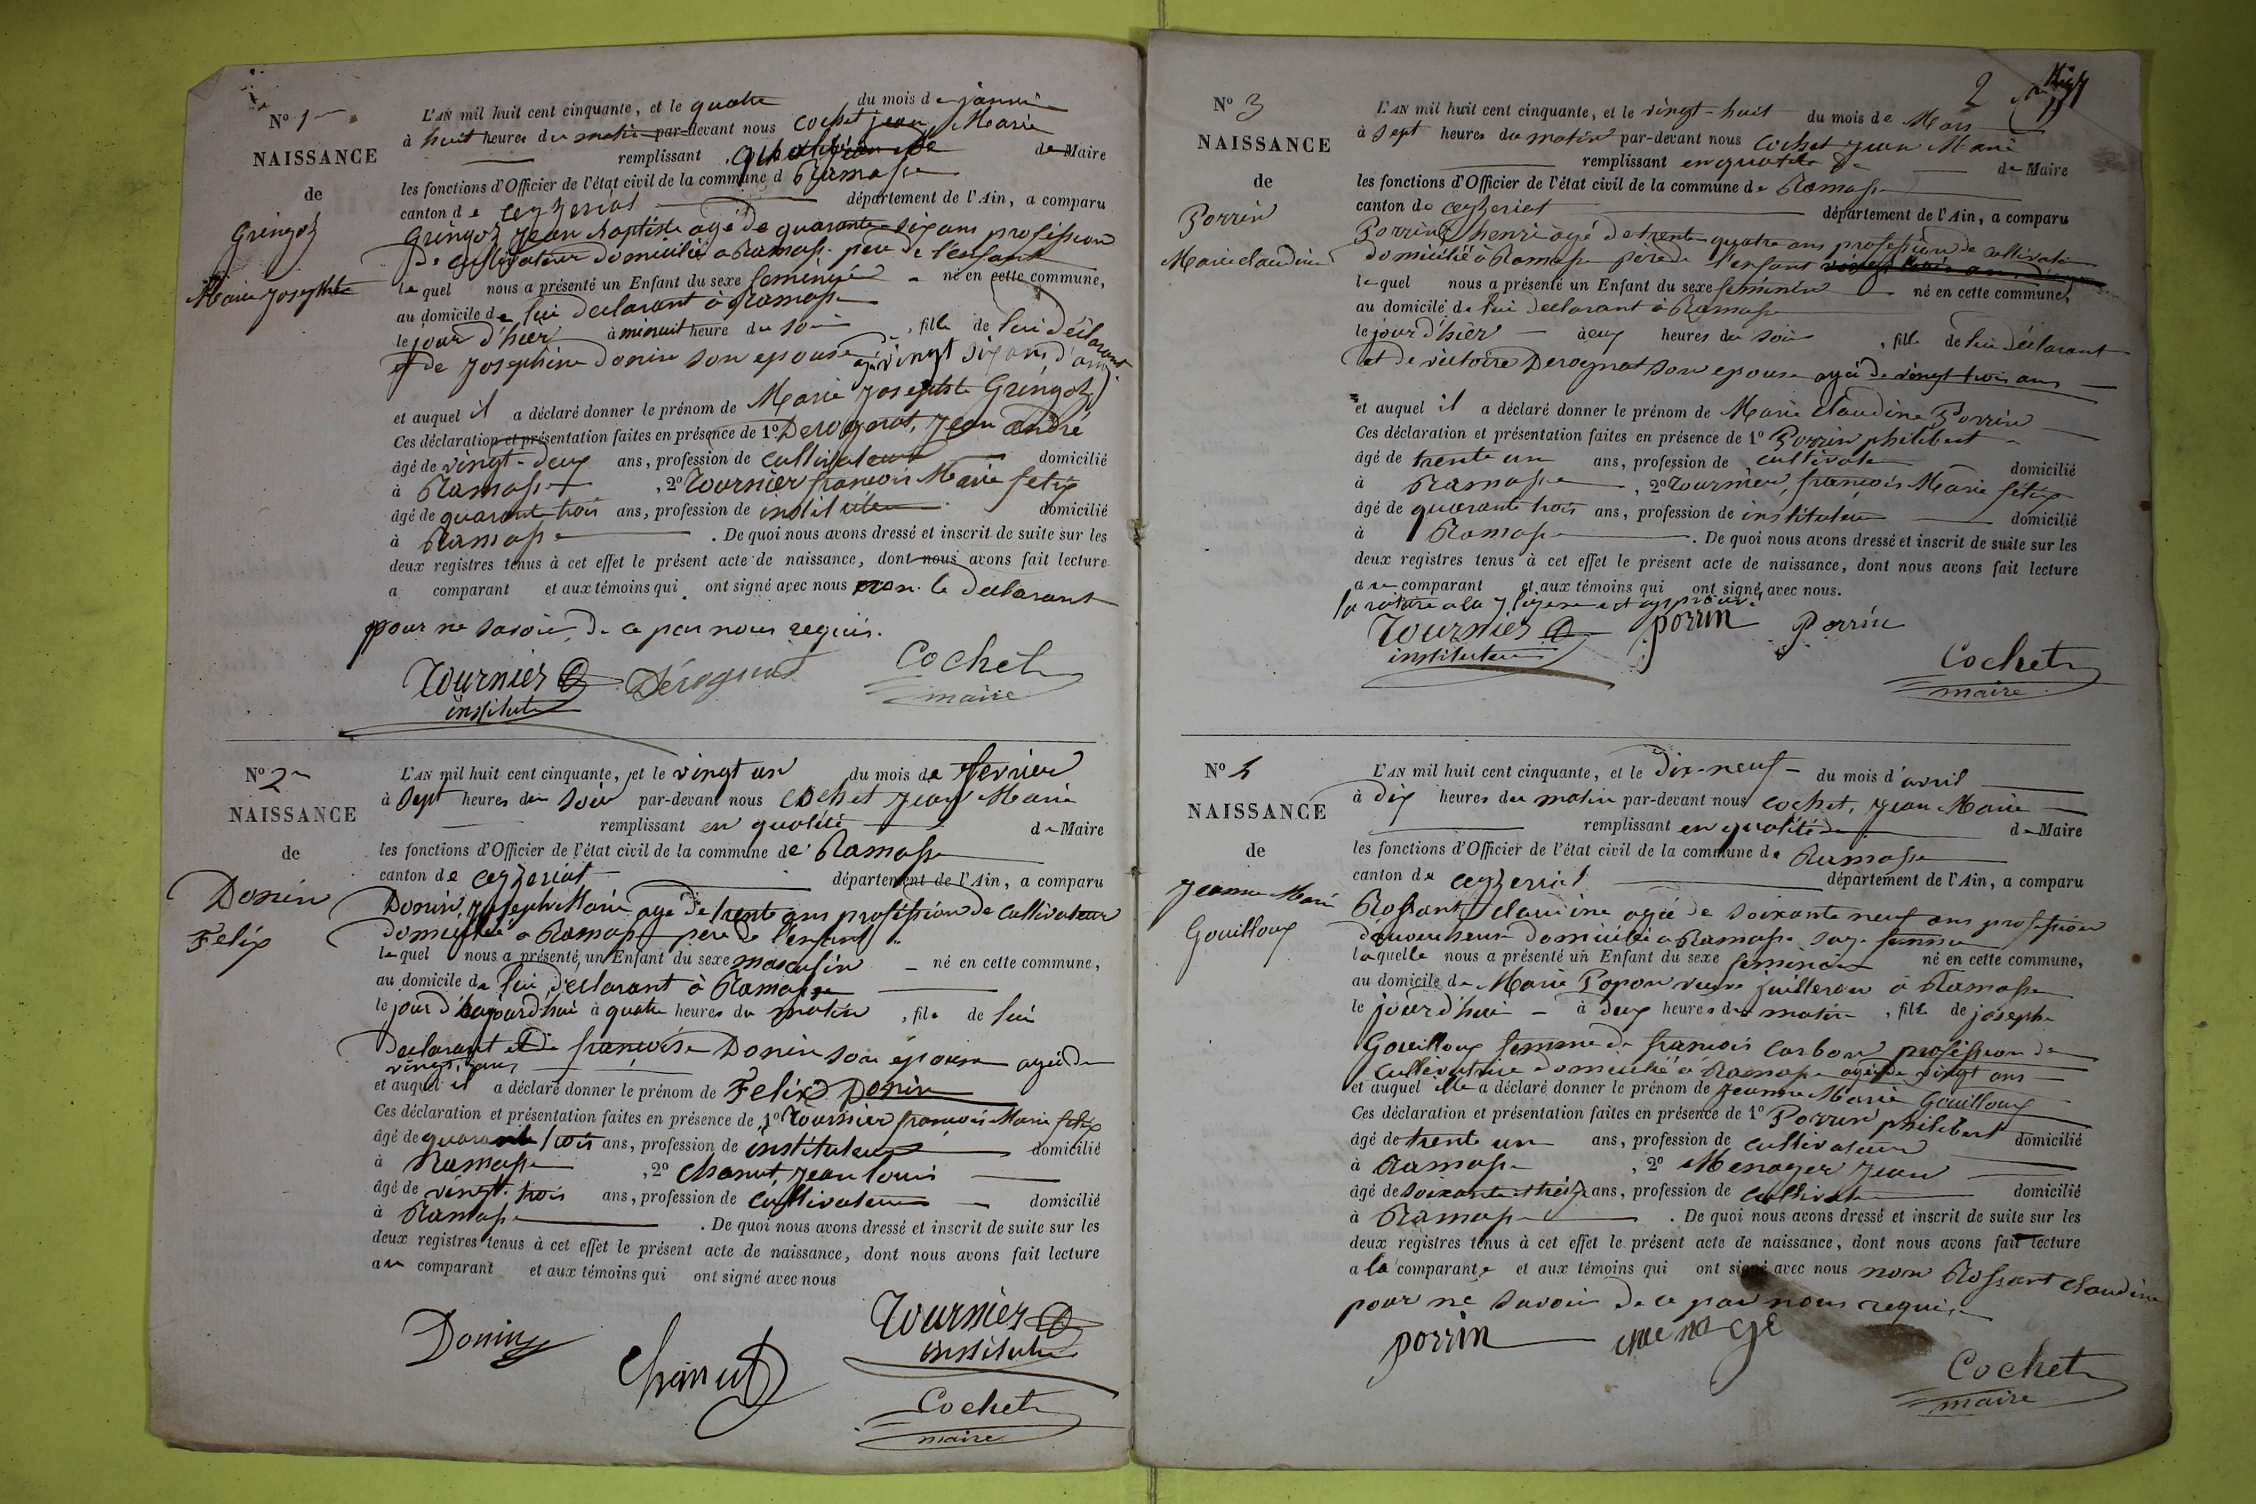 N° 1
NAISSANCE
de
Gringoz
Marie Josephte
L'AN mil huit cent cinquante, et le quatre du mois de janvier
à huit heures du matin par-devant nous Cochet jean Marie
remplissant en qualité de Maire
les fonctions d'Officier de l'état civil de la commune d Ramasse
canton de Ceyzeriat département de l'Ain, a comparu
Gringoz Jean baptiste agé de quarante six ans profession
de cultivateur domicilié a Ramasse père de l'enfant
lequel nous a présenté un Enfant du sexe feminin né en cette commune,
au domicile de lui declarant à Ramasse
le jour d'hier à minuit heure du soir, fille de lui déclarant
et de Josephine Donin son epouse agée de vingt six ans
et auquel il a déclaré donner le prénom de Marie Josephte Gringoz
Ces déclaration et présentation faites en présence de 1° Derognat, Jean andré
âgé de vingt-deux ans, profession de cultivateur domicilié
à Ramasse, 2° Tournier françois Marie felix
âgé de quarante trois ans, profession de instituteur domicilié
à Ramasse. De quoi nous avons dressé et inscrit de suite sur les
deux registres tenus à cet effet le présent acte de naissance, dont nous avons fait lecture
a comparant et aux témoins qui ont signé avec nous non le declarant
pour ne savoir de ce par nous requis.
Tournier Dérognat Cochet
instituteur maire
N° 2
NAISSANCE
de
Donin
Felix
L'AN mil huit cent cinquante, et le vingt un du mois de fevrier
à sept heures du soir par-devant nous Cochet Jean Marie
remplissant en qualité de Maire
les fonctions d'Officier de l'état civil de la commune de Ramasse
canton de Ceyzeriat département de l'Ain, a comparu
Donin, Joseph Marie agé de trente ans profession de cultivateur
domicilié a Ramasse père de l'enfant
lequel nous a présenté un Enfant du sexe masculin né en cette commune,
au domicile de lui declarant à Ramasse
le jour d'aujourd'hui à quatre heures du matin, fils de lui
declarant et de françoise Donin son épouse agée de
vingt
et auquel il a déclaré donner le prénom de Felix Donin
Ces déclaration et présentation faites en présence de 1° Tournier françois Marie felix
âgé de quarante trois ans, profession de instituteur domicilié
à Ramasse, 2° Chanut, Jean louis
âgé de vingt-trois ans, profession de cultivateur domicilié
à Ramasse. De quoi nous avons dressé et inscrit de suite sur les
deux registres tenus à cet effet le présent acte de naissance, dont nous avons fait lecture
au comparant et aux témoins qui ont signé avec nous
Donin Chanut Tournier
instituteur
Cochet
maire
2
N° 3
NAISSANCE
de
Porrin
Marie claudine
L'AN mil huit cent cinquante, et le vingt-huit du mois de Mars
à sept heures du matin par-devant nous Cochet Jean Marie
remplissant en qualité de Maire
les fonctions d'Officier de l'état civil de la commune de Ramasse
canton de Ceyzeriat département de l'Ain, a comparu
Porrin henri agé de trente quatre ans profession de cultivateur
domicilié à Ramasse père de l'enfant
lequel nous a présenté un Enfant du sexe féminin né en cette commune,
au domicile de lui declarant à Ramasse
le jour d'hier à deux heures du soir, fille de lui déclarant
et de victoire Derognat son epouse agée de vingt trois ans
et auquel il a déclaré donner le prénom de Marie Claudine Porrin
Ces déclaration et présentation faites en présence de 1° Porrin philibert
âgé de trente un ans, profession de cultivateur domicilié
à Ramasse, 2° Tournier, françois Marie félix
âgé de quarante trois ans, profession de instituteur domicilié
à Ramasse. De quoi nous avons dressé et inscrit de suite sur les
deux registres tenus à cet effet le présent acte de naissance, dont nous avons fait lecture
au comparant et aux témoins qui ont signé avec nous.
la rature a la 7 ligne est approuvé
Tournier porrin Porrin
instituteur Cochet
maire
N° 4
NAISSANCE
de
Jeanne Marie
Gouilloux
L'AN mil huit cent cinquante, et le dix-neuf du mois d'avril
à dix heures du matin par-devant nous Cochet, Jean Marie
remplissant en qualité de Maire
les fonctions d'Officier de l'état civil de la commune de Ramasse
canton de Ceyzeriat département de l'Ain, a comparu
Rossant claudine agée de soixante neuf ans profession
d'accoucheuse domiciliée a Ramasse sage femme
laquelle nous a présenté un Enfant du sexe feminin né en cette commune,
au domicile de Marie Popon veuve juilleron à Ramasse
le jour d'hui à deux heures du matin, fille de joseph
Gouilloux femme de françois Carbon profession de
cultivatrice domiciliée à Ramasse agée de vingt ans
et auquel elle a déclaré donner le prénom de Jeanne Marie Gouilloux
Ces déclaration et présentation faites en présence de 1° Porrin philibert
âgé de trente un ans, profession de cultivateur domicilié
à Ramasse, 2° Menager Jean
âgé de soixante treize ans, profession de cultivateur domicilié
à Ramasse. De quoi nous avons dressé et inscrit de suite sur les
deux registres tenus à cet effet le présent acte de naissance, dont nous avons fait lecture
a la comparante et aux témoins qui ont signé avec nous non Rossant claudine
pour ne savoir de ce par nous requise
porrin menage
Cochet
maire